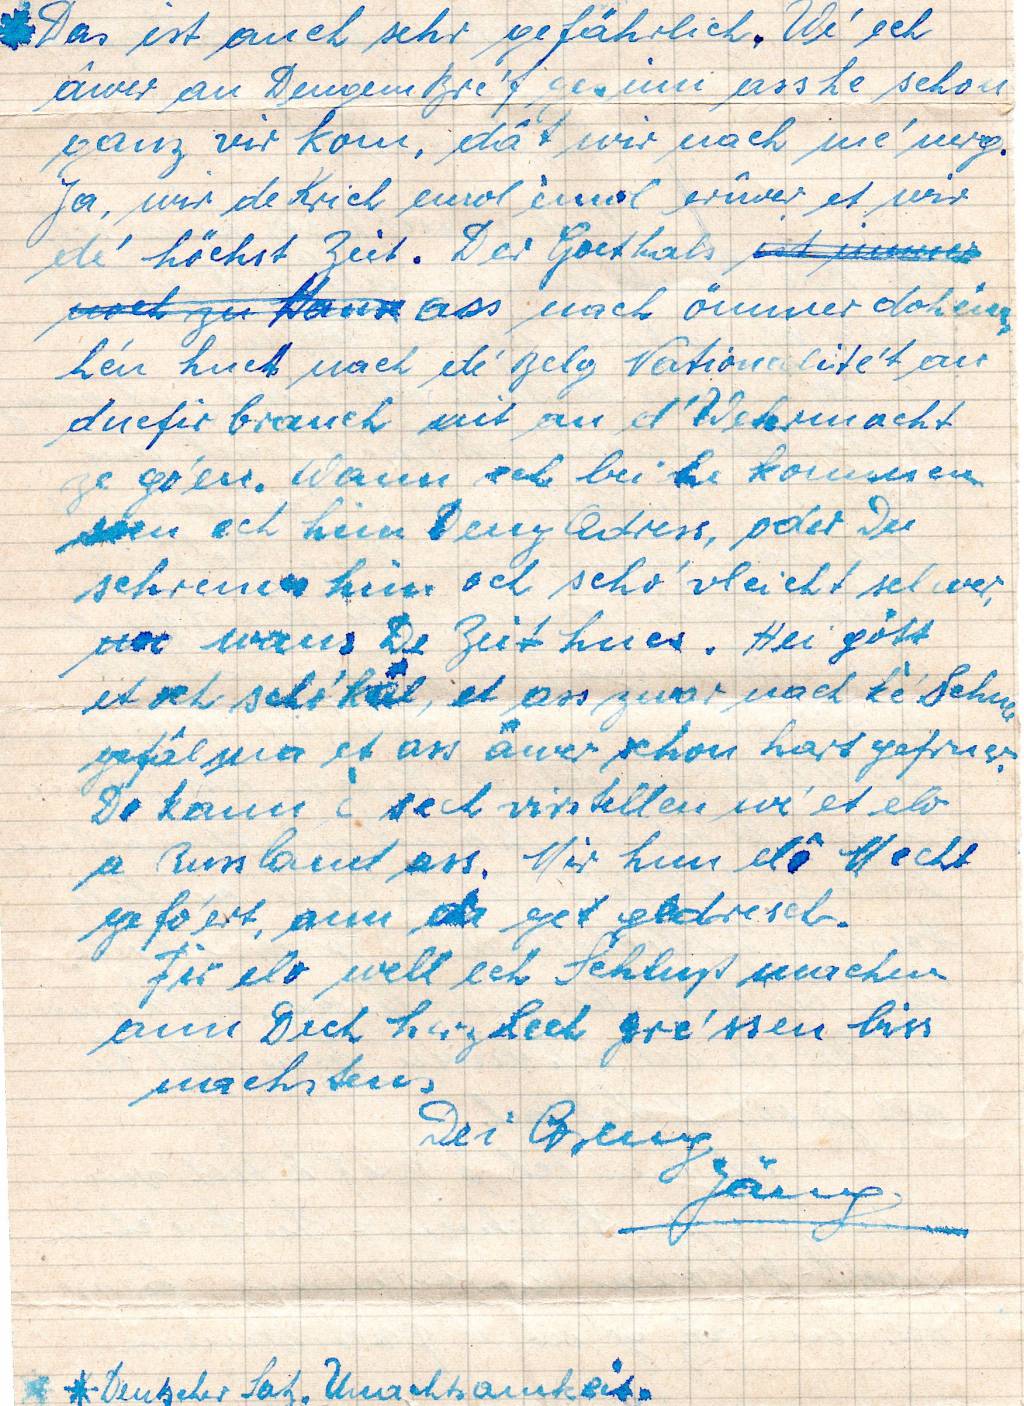 *Das ist auch sehr gefährlich. Wé ech
âwer an Dengem Bréf gesinn ass he schon
ganz vir kom, dât wir nach mé nerg.
Ja, wir de Krich emol émol eriwer et wir
dé höchst Zeit. Der Goethals ist immer
noch zu Haus ass nach ömmer dohém,
hén huet nach dé Belg Nationalitét an
duefir brauch nit an d'Wehrmacht
ze goen. Wann ech bei he kommen
ech him Deng Adress, oder Du
schreiws him och scho vleicht selwer,
wans De Zeit hues. Hei gött
et och scho kâl, et ass zwar nach ké Schné
gefâl ma et ass âwer schon hart gefruer.
Do kann é sech virstellen wé et elo
a Russland ass. Mir hun dô Mecht
gefó'ert, ann get gedresch.
Fir elo well ech Schluss machen
ann Dech herzlech gré'ssen biss
nächstens
Dei Greng
Jäng
* Deutscher Satz. Unachtsamkeit.